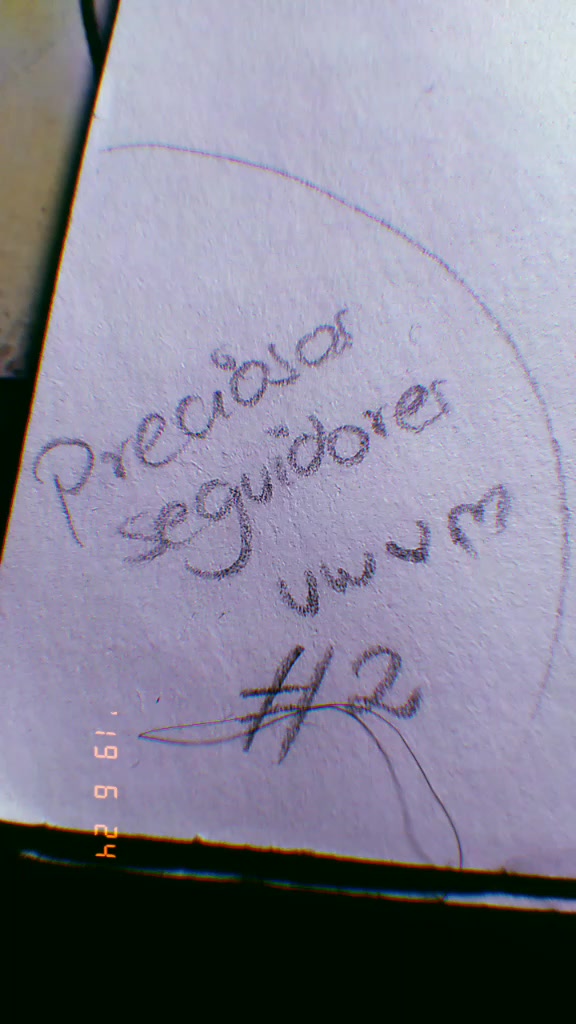 Preciosos
seguidores
uwu m
#2
'19 6 24